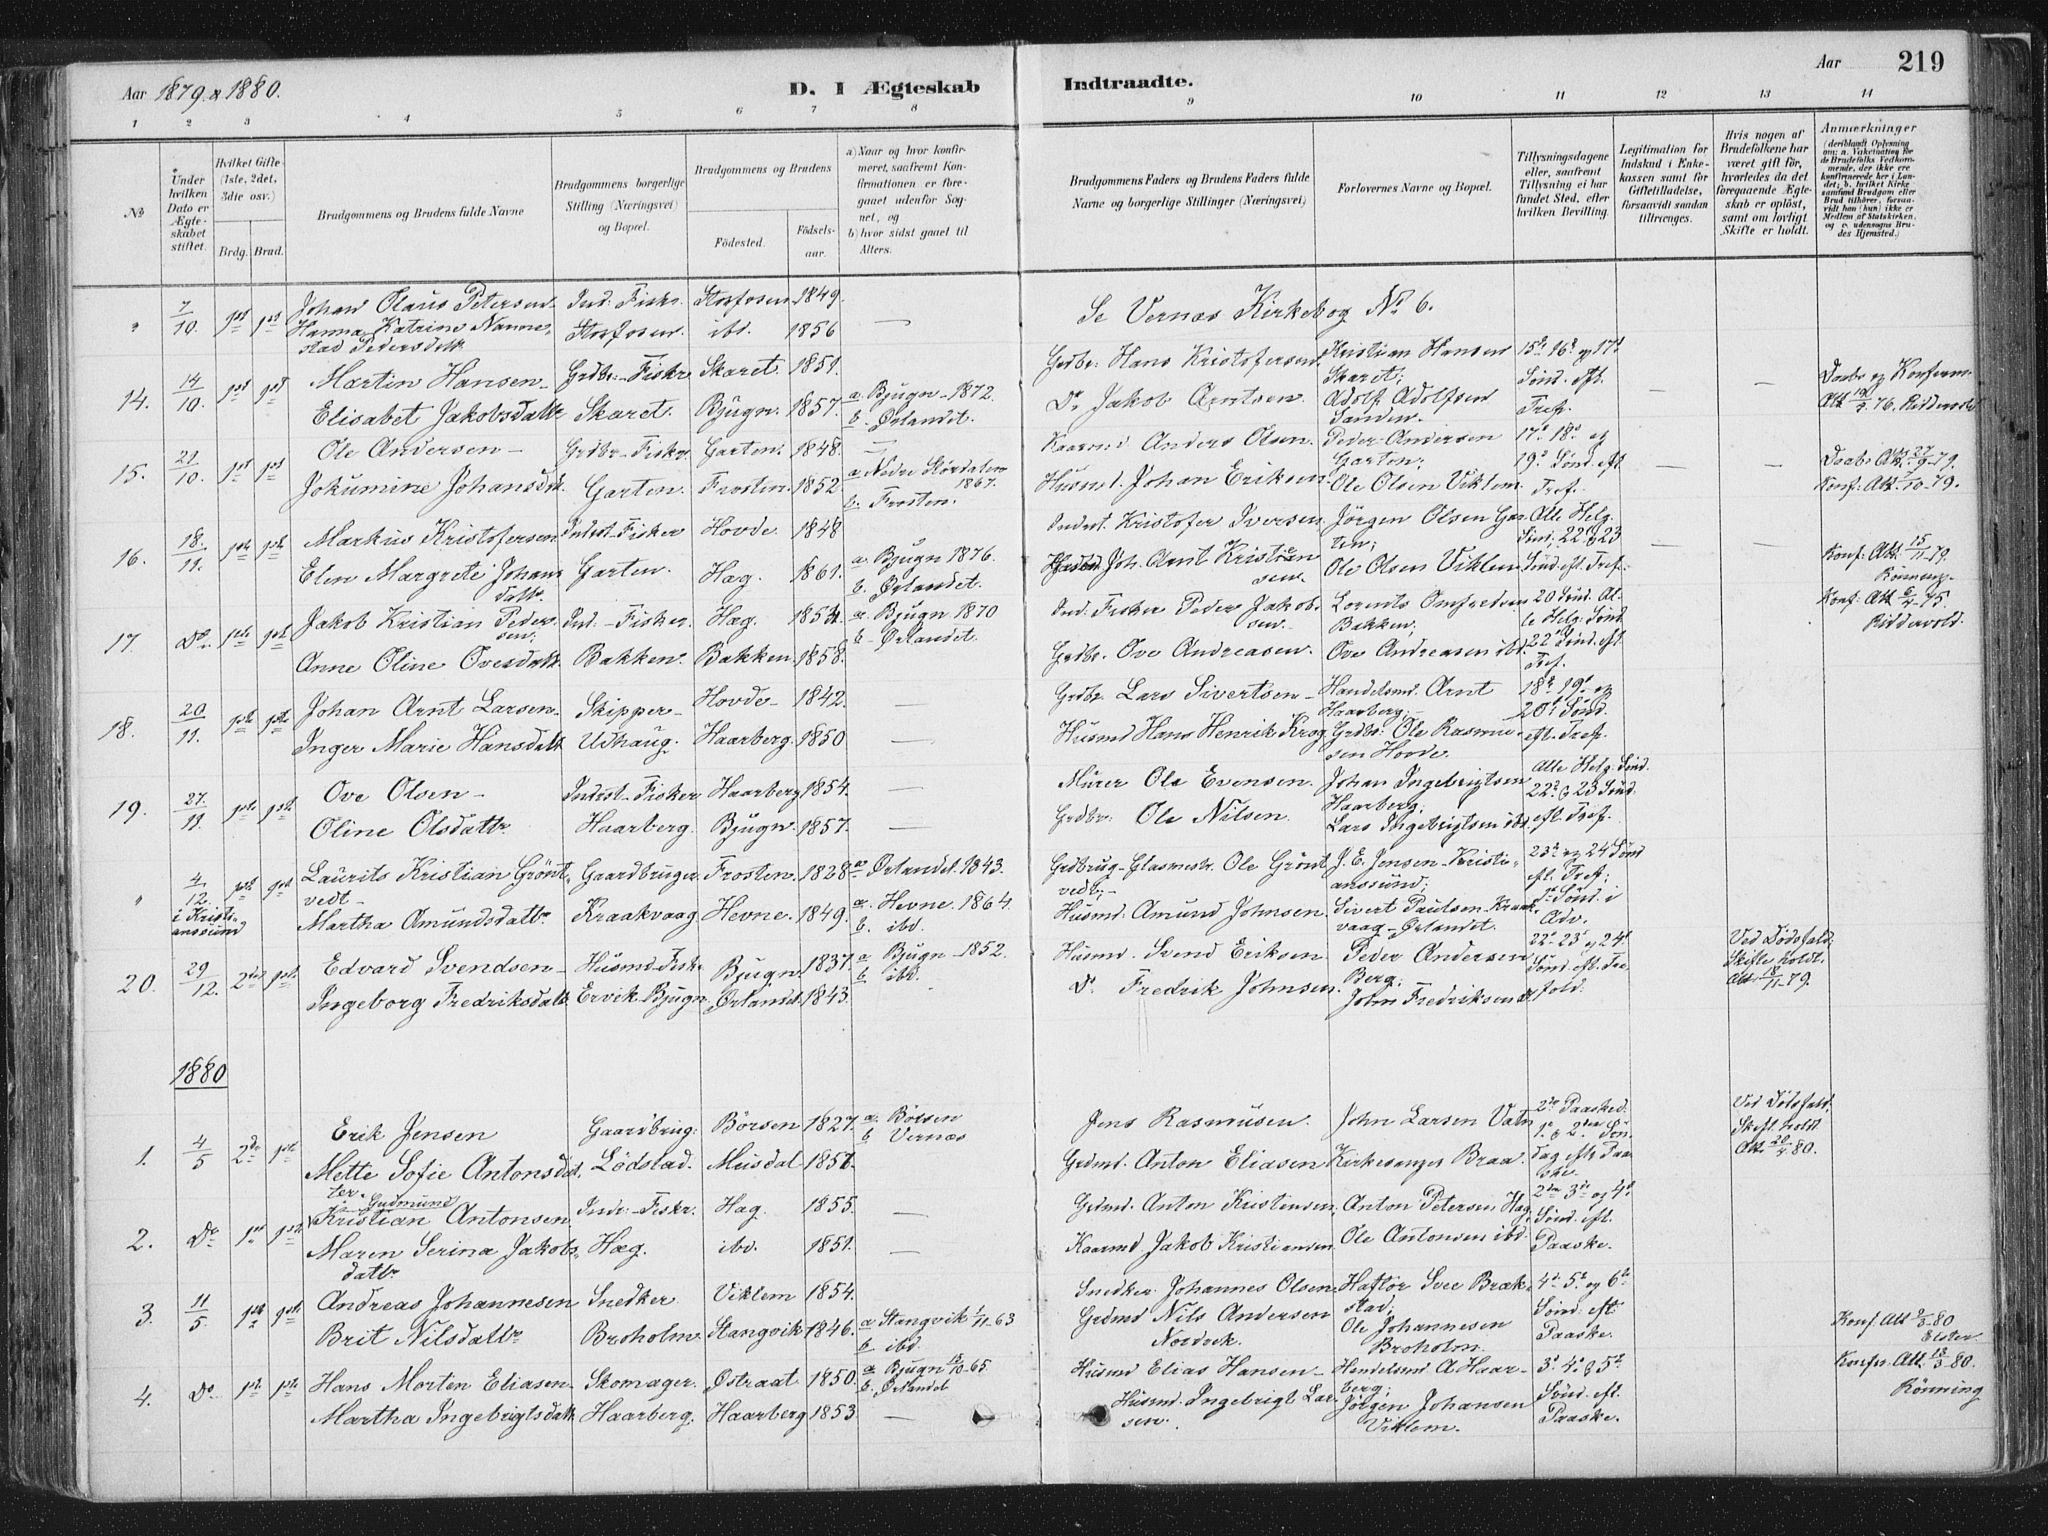 Aar 1879 & 1880.
D. I Ægteskab Indtraadte.
Aar 219
1 2 3 4 5 6 7 8 9 10 11 12 13 14
No
Under hvilken Dato er Ægteskabet stiftet.
Hvilket Gifte (1ste, 2det, 3die osv.)
Brdg. Brud.
Brudgommens og Brudens fulde Navne
Brudgommens borgerlige Stilling (Næringsvei) og Bopæl.
Brudgommens og Brudens
Fødested. Fødselsaar.
a) Naar og hvor konfirmeret, saafremt Konfirmationen er foregaaet udenfor Sognet, og
b) hvor sidst gaaet til Alters.
Brudgommens Faders og Brudens Faders fulde Navne og borgerlige Stillinger (Næringsvei)
Forlovernes Navne og Bopæl.
Tillysningsdagene eller, saafremt Tillysning ei har fundet Sted, efter hvilken Bevilling.
Legitimation for Indskud i Enkekassen samt for Giftetilladelse, forsaavidt saadan tiltrenges.
Hvis nogen af Brudefolkene har været gift før, hvorledes da det foregaaende Ægteskab er opløst, samt om lovligt Skifte er holdt.
Anmærkninger (deriblandt Oplysning om: a. Vakcination for de Brudefolks Vedkommende, der ikke ere konfirmerede her i Landet; b. hvilket Kirkesamfund Brudgom eller Brud tilhører, forsaavidt han (hun) ikke er Medlem af Statskirken, og c. udensogns Brudes Hjemsted.)
" 7/10. 1ste 1ste Johan Olaus Petersen Ind: Fiskr. Storfosen 1849.
Hanna Katrine Nannestad Pedersdatt. Storfosen. ibd. 1856 —
Se Vernæs Kirkebog No 6.
14. 14/10. 1ste 1ste Martin Hansen Grdbr:-Fiskr Skaret. 1851.
Elisabet Jakobsdattr Skaret. Bjugn. 1857. a. Bjugn 1872. b. Ørlandet.
Grdbr. Hans Kristofersen. Kristian Hansen Skaret; 15de 16de og 17de
Do Jakob Arntsen. Adolf Adolfsen Sanden. Sønd. eft. Tref. — —
Daab og Konfirm. Att 76. Riddervold
15. 21/10. 1ste 1ste Ole Andersen Grdbr-Fiskr. Garten. 1848. —
Jokumine Johansdtt. Garten. Frosten. 1852 a. Nedre Størdalen 1867. b. Frosten.
Kaarmd Anders Olsen. Peder Andersen Garten; 17de 18de og
Husmd. Johan Eriksen Ole Olsen Viklem. 19de Sønd. eft. Tref. — —
Daab: Att. 27/9-79.
Konf: Att. /10-79.
16. 18/11. 1ste 1ste Markus Kristofersen Indst-Fisker Hovde. 1848
Elen Margrete Johansdattr. Garten. Hæg. 1861. a. Bjugn 1876. b. Ørlandet.
Inderst. Kristofer Iversen Jörgen Olsen Garten; Alle Helg. Sønd; 22. & 23
Joh. Arnt Kristiansen. Ole Olsen Viklem Sønd. eft. Tref. — —
Konf: Att. 15/11-79. Rönning.
17. Do. 1ste 1ste Jakob Kristian Pedersen. Ind.-Fisker. Hæg. 1854. a. Bjugn 1870 b. Ørlandet.
Anne Oline Ovesdattr. Bakken. Bakken. 1858.
Ind. Fisker Peder Jakobsen. Lorents Bakken; 20 Sønd. Alle Helg. Sønd
Grdbr. Ove Andreasen. Ove Andreasen ibd. 22de Sønd. eft Tref.
Konf: Att 6/4-75. Riddervold.
18. 20/11. 1ste 1ste Johan Arnt Larsen Skipper Hovde 1842. —
Inger Marie Hansdatt. Udhaug. Haarberg. 1850 —
Grdbr. Lars Sivertsen Handelsmd. Arnt Haarberg; 18de 19de og
Husmd Hans Henrik Krog Grdbr: Ole Rasmussen Hovde. 20de Sønd. eft. Tref.
19. 27/11. 1ste 1ste Ove Olsen Inderst-Fisker Haarberg 1854. —
Oline Olsdattr Haarberg. Bjugn. 1857. —
Murer Ole Evensen. Johan Ingebrigtsen Haarberg; Alle Helg. Sønd.
Grdbr: Ole Nilsen. Lars Ingebrigtsen ibd. 22de & 23 Sønd. eft. Tref.
" 4/12. i Kristianssund 1ste 1ste Laurits Kristian Gröntvedt Gaardbruger Frosten. 1828 a. Ørlandet. 1843.
Martha Amundsdattr. Kraakvaag Hevne. 1849. a. Hevne. 1864. b. ibd.
Grdbrug-Glasmestr. Ole Gröntvedt; J. E. Jensen-Kristianssund; 23de og 24 Sønd. eft. Tref;
Husmd. Amund Johnsen. Sivert Paulsen Kraakvaag-Ørlandet. 1ste Sønd. i Adv.
20. 29/12. 2det 1ste Edvard Svendsen Husmd-Fisk. Bjugn 1837. a. Bjugn 1852. b. ibd.
Ingeborg Fredriksdatt. Ervik Bjugn Ørlandet 1843.
Husmd. Svend Eriksen Peder Andersen Berg; 22de 23de og 24de
Do Fredrik Johnsen. John Fredriksen Sønd. eft. Trefold.
Ved Dødsfald; Skifte holdt. Att. 18/11-79.
1880
1. 4/5 2det 1ste Erik Jensen Gaardbrug: Börsen 1827. a. Börsen b. Vernæs
Mette Sofie Antonsdatter. Lödstad. Musdal 1857.
Jens Rasmusen. John Larsen Vatn 2den Paasked.
Grdmd. Anton Eliasen Kirkesanger Braa. 1ste & 2den Søndag eftr Paaske.
Ved Dødsfald; Skift. holdt. Att. 20/4 80.
2. Do 1ste 1ste Gudmund Kristian Antonsen Indr-Fiskr. Hæg. 1855. —
Maren Serina Jakobsdattr Hæg. ibd. 1851. —
Grdmd. Anton Kristensen; Anton Petersen Hæg; 2den 3die og 4de
Kaarmd Jakob Kristiansen Ole Antonsen ibd. Sønd. eft. Paaske.
3. 11/5. 1ste 1ste Andreas Johannesen Snedker Viklem 1854.
Brit Nilsdattr. Broholm. Stangvik 1846. a. Stangvik 1/11-63 b. ibd.
Snedker. Johannes Olsen Haftor See Brækstad; 4de 5te og 6te
Grdmd Nils Andersen Nordvik. Ole Johannesen Broholm. Sønd. eft. Paaske.
Konf. Att 9/3-80 Elster.
4. Do 1ste 1ste Hans Morten Eliasen Skomager. Østraat 1850. a. Bjugn 15/10-65. b. Ørlandet
Martha Ingebrigtsdatt Haarberg. Haarberg 1853. —
Husmd Elias Hansen Handelsmd A. Haarberg; 3de 4de & 5te
Husmd. Ingebrigt Larsen. Jörgen Johansen Viklem. Sønd. eft. Paaske.
Konfr. Att. 18/3-80. Rönning